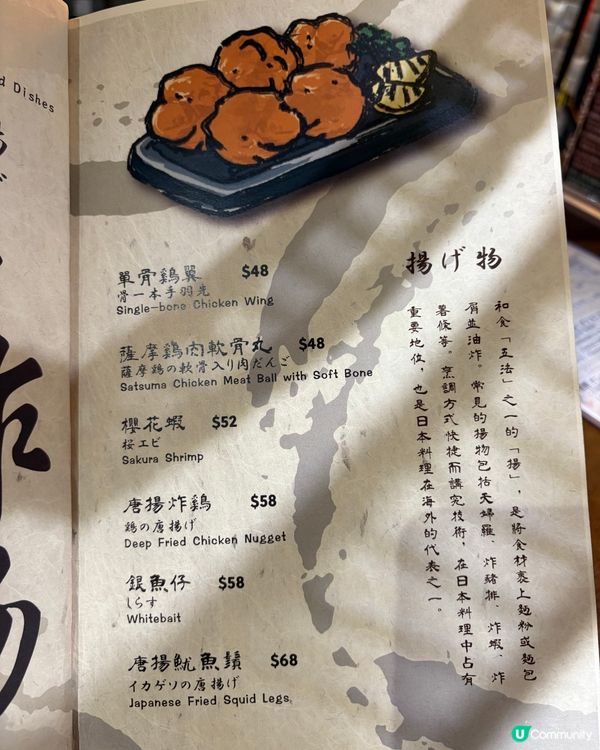 d Dishes
單骨鷄翼 $48
骨一本手羽先
Single-bone Chicken Wing
薩摩鷄肉軟骨丸 $48
薩摩鶏の軟骨入り肉だんご
Satsuma Chicken Meat Ball with Soft Bone
櫻花蝦 $52
桜エビ
Sakura Shrimp
唐揚炸鷄 $58
鶏の唐揚げ
Deep Fried Chicken Nugget
銀魚仔 $58
しらす
Whitebait
唐揚魷魚鬚 $68
イカゲソの唐揚げ
Japanese Fried Squid Legs
揚げ物
和食「五法」之一的「揚」，是將食材裹上麵粉或麵包
屑並油炸。常見的揚物包括天婦羅、炸豬排、炸蝦、炸
薯條等。烹調方式快捷而講究技術，在日本料理中占有
重要地位，也是日本料理在海外的代表之一。
U Community